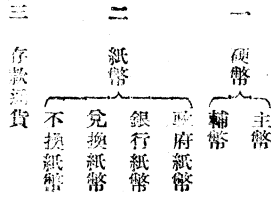 一 硬幣
主幣
輔幣
二 紙幣
政府紙幣
銀行紙幣
兌換紙幣
不換紙幣
三 存款通貨